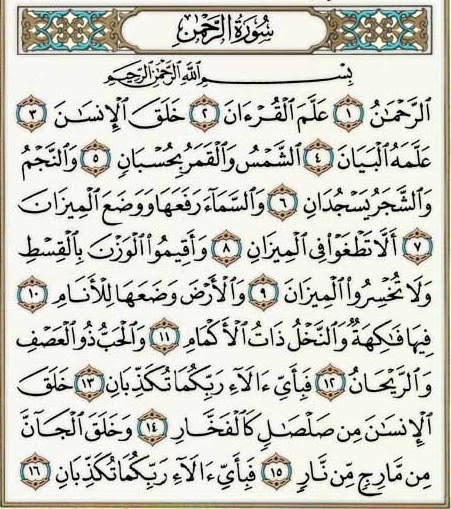 سُورَةُ الرَّحْمٰن
بِسْمِ اللَّهِ الرَّحْمَٰنِ الرَّحِيمِ
الرَّحْمَٰنُ ١ عَلَّمَ الْقُرْءَانَ ٢ خَلَقَ الْإِنسَٰنَ ٣
عَلَّمَهُ الْبَيَانَ ٤ الشَّمْسُ وَالْقَمَرُ بِحُسْبَانٍ ٥ وَالنَّجْمُ
وَالشَّجَرُ يَسْجُدَانِ ٦ وَالسَّمَآءَ رَفَعَهَا وَوَضَعَ الْمِيزَانَ
٧ أَلَّا تَطْغَوْا۟ فِى الْمِيزَانِ ٨ وَأَقِيمُوا۟ الْوَزْنَ بِالْقِسْطِ
وَلَا تُخْسِرُوا۟ الْمِيزَانَ ٩ وَالْأَرْضَ وَضَعَهَا لِلْأَنَامِ ١٠
فِيهَا فَٰكِهَةٌ وَالنَّخْلُ ذَاتُ الْأَكْمَامِ ١١ وَالْحَبُّ ذُو الْعَصْفِ
وَالرَّيْحَانُ ١٢ فَبِأَىِّ ءَالَآءِ رَبِّكُمَا تُكَذِّبَانِ ١٣ خَلَقَ
الْإِنسَٰنَ مِن صَلْصَٰلٍ كَالْفَخَّارِ ١٤ وَخَلَقَ الْجَآنَّ
مِن مَّارِجٍ مِّن نَّارٍ ١٥ فَبِأَىِّ ءَالَآءِ رَبِّكُمَا تُكَذِّبَانِ ١٦